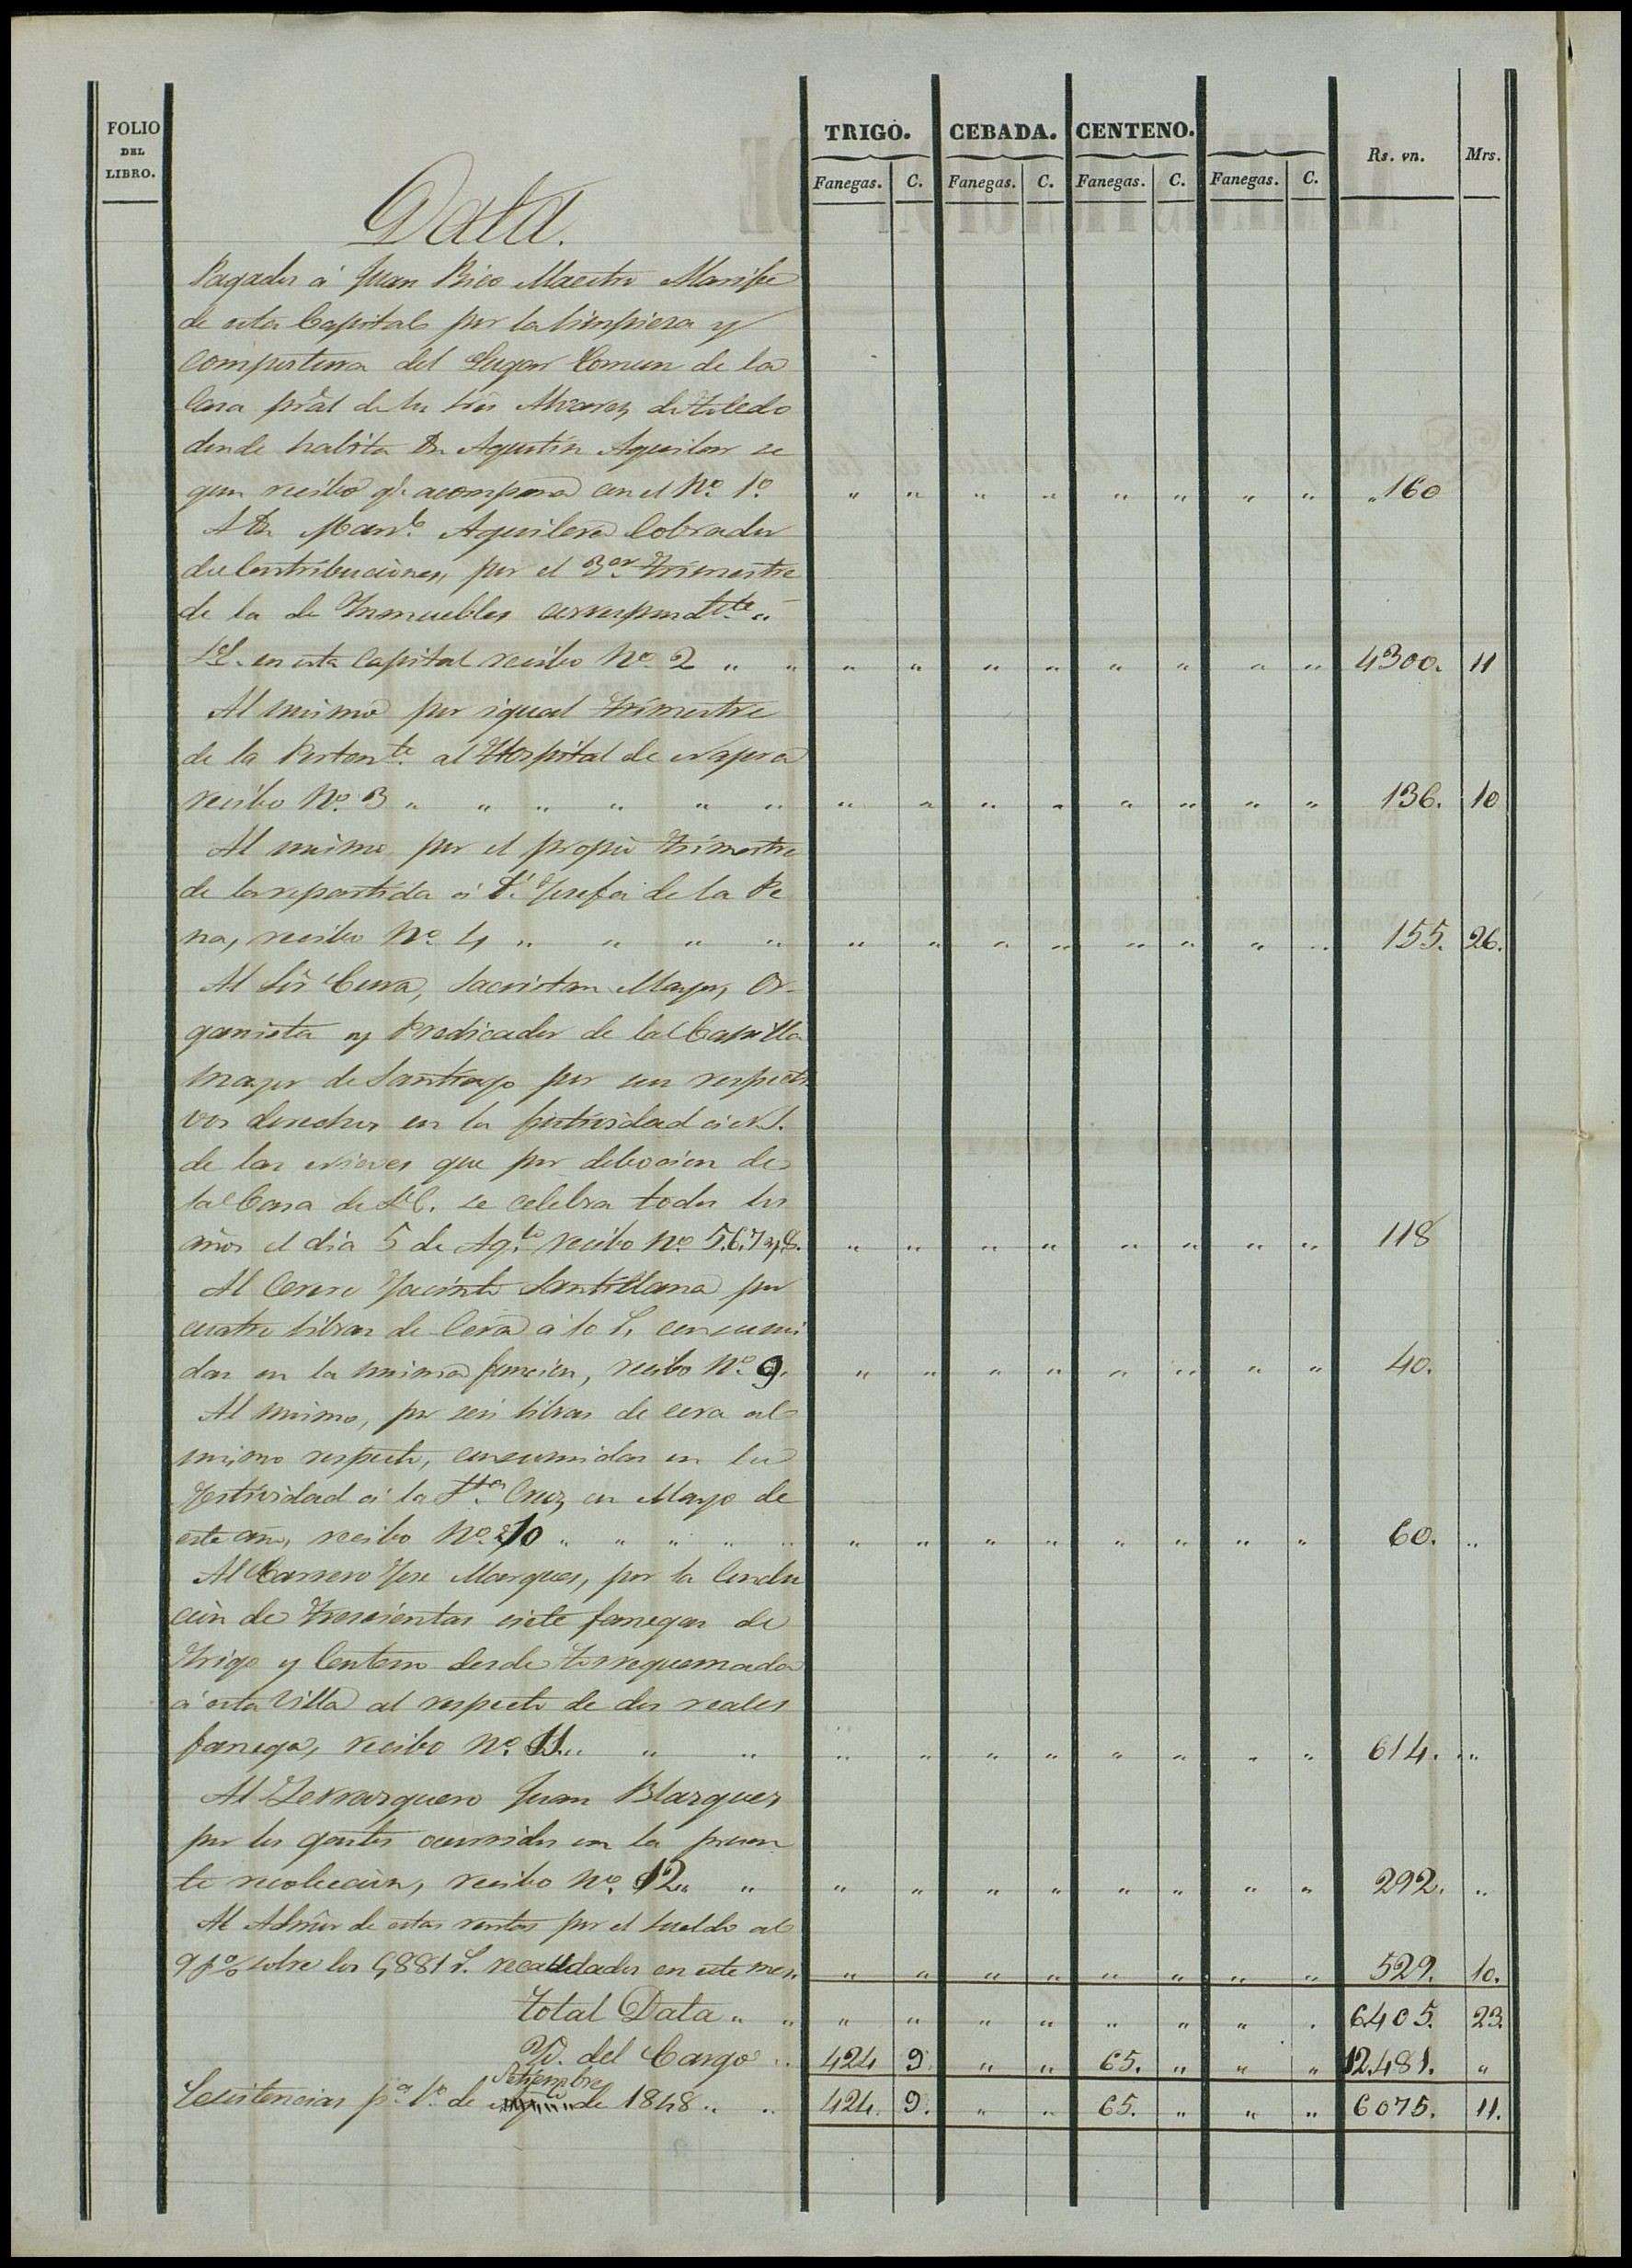 FOLIO
DEL
LIBRO.
TRIGO. CEBADA. CENTENO.
Rs. vn. Mrs.
Fanegas. C. Fanegas. C. Fanegas. C. Fanegas. C.
Data.
Pagados á Juan Rico Maestro Alarife
de esta Capital por la limpieza y
compostura del Lugar Comun de la
Casa pral de los tres Alvarez de toledo
donde habita Dn Agustin Aguilar se
gun recibo qe acompaña con el No. 1o. " " " " " " " " " 160
A Dn Manl. Aguilera Cobrador
de Contribuciones, por el 3er. trimestre
de la de Inmuebles correspondte. á
S.E. en esta Capital recibo No. 2 " " " " " " " " " " 4300. 11
Al mismo por igual trimestre
de la Pertente. al Hospital de
recibo No. 3 " " " " " " " " " " " " " " 136. 10
Al mismo, por el propio trimestre
de la repartida á Da. Josefa de la Pe
na, recibo No. 4 " " " " " " " " " " " " 155. 26.
Al Sor Cura, Sacristan Mayor, Or-
ganista y Predicador de la Capilla
mayor de Santiago por sus respecti
vos derechos en la festividad á N.S.
de las Nieves que por debocion de
la Casa de S.E. se celebra todos los
años el dia 5 de Agto. recibo No. 5.6.7 y 8. " " " " " " " " 118
Al Cerero Jacinto Santillana por
cuatro libras de Cera á 10 r. consumi
das en la misma funcion, recibo No. 9. " " " " " " " " 40.
Al mismo, por seis libras de cera al
mismo respecto, consumidas en la
festividad á la Sta. Cruz en Mayo de
este año, recibo No. 10 " " " " " " " " " " " " " 60. "
Al Carrero Jose Marquez, por la Condu
cion de trescientas siete fanegas de
trigo y Centeno desde torrequemada
á esta Villa al respecto de dos reales
fanega, recibo No. 11 " " " " " " " " " " " 614. "
Al Juan Blazquez
por los gastos ocurridos en la presen
te recoleccion, recibo No. 12 " " " " " " " " " " 292. "
Al Admor de estas rentas por el sueldo al
9 p% sobre los 5,881 r. recaudados en este mes. " " " " " " " " 529. 10.
total Data " " " " " " " " " " 6405. 23.
Yd. del Cargo " 424 9. " " 65. " " " 12.481. "
Setiembre
Existencias pa. 1o. de de 1848 " " 424. 9. " " 65. " " " 6075. 11.